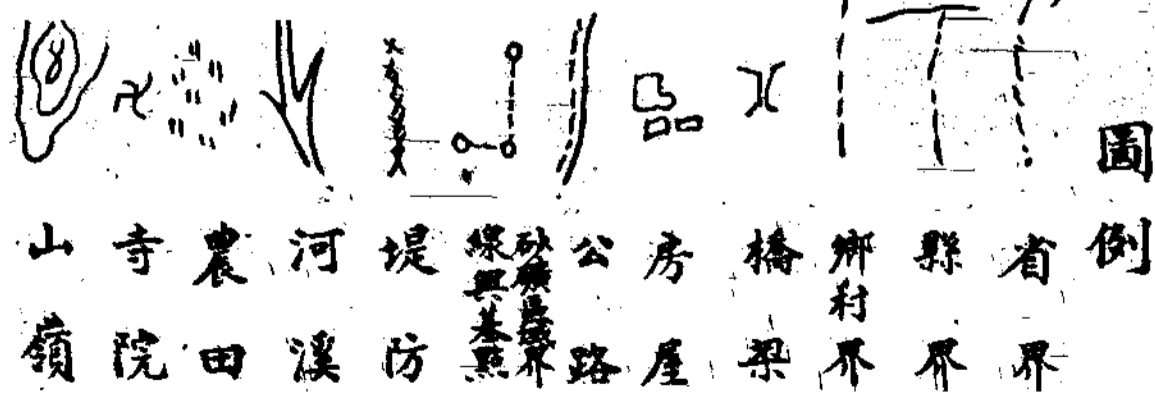 圖例
省界
縣界
鄉村界
橋梁
房屋
公路
砂礦區域界
線與基點
堤防
河溪
農田
寺院
山嶺